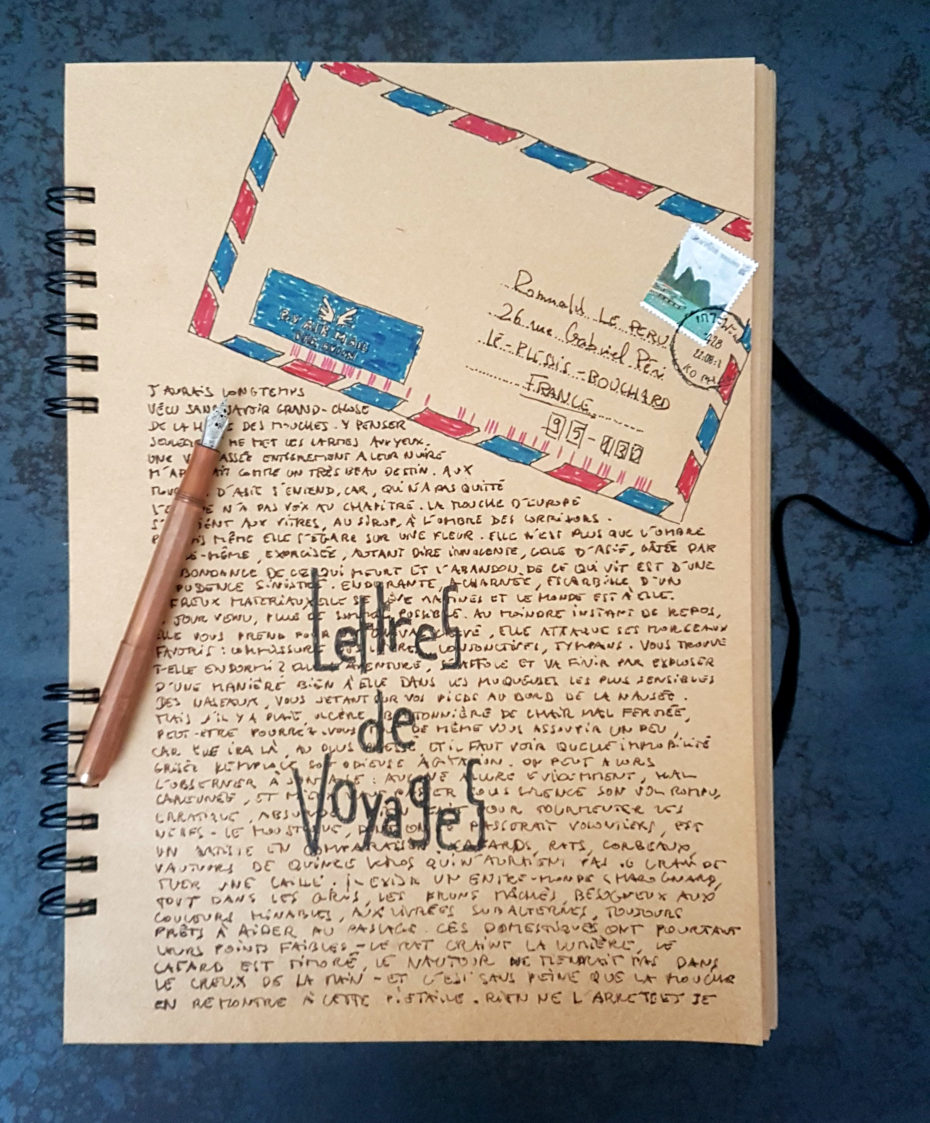 BY AIR MAIL
PAR AVION
Romuald LE PERU
26 rue Gabriel Péri
LE-PLESSIS-BOUCHARD
FRANCE
95-130
J'AURAIS LONGTEMPS
VÉCU SANS SAVOIR GRAND-CHOSE
DE LA DES MOUCHES. Y PENSER
ME MET LES LARMES AUX YEUX.
UNE VIE PASSÉE ENTIÈREMENT A LEUR NUIRE
M'APPARAIT COMME UN TRÈS BEAU DESTIN. AUX
D'ASIE S'ENTEND, CAR, QUI N'A PAS QUITTÉ
N'A PAS VOIX AU CHAPITRE. LA MOUCHE D'EUROPE
S'EN TIENT AUX VITRES, AU SIROP, À L'OMBRE DES CORRIDORS.
PARFOIS MÊME ELLE S'EGARE SUR UNE FLEUR. ELLE N'EST PLUS QUE L'OMBRE
D'ELLE-MÊME, EXORCISÉE, AUTANT DIRE INNOCENTE, CELLE D'ASIE, GÂTÉE PAR
DE CE QUI MEURT ET L'ABANDON DE CE QUI VIT EST D'UNE
SINISTRE. ENDURANTE, ACHARNÉE, ESCARBILLE D'UN
MATERIAU, ELLE SE LÈVE MATINES ET LE MONDE EST A ELLE.
JOUR VENU, PLUS DE SOMMEIL POSSIBLE. AU MOINDRE INSTANT DE REPOS,
ELLE VOUS PREND POUR UN CHEVAL CREVÉ, ELLE ATTAQUE SES MORCEAUX
FAVORIS : COMMISSURE DES LÈVRES, CONJONCTIVES, TYMPANS. VOUS TROUVE
T-ELLE ENDORMI ? ELLE S'AVENTURE, S'AFFOLE ET VA FINIR PAR EXPLOSER
D'UNE MANIÈRE BIEN À ELLE DANS LES MUQUEUSES LES PLUS SENSIBLES
DES NASEAUX, VOUS JETANT SUR VOS PIEDS AU BORD DE LA NAUSÉE.
MAIS S'IL Y A PLAIE, ULCÈRE, BOUTONNIÈRE DE CHAIR MAL FERMÉE,
PEUT-ÊTRE POURREZ-VOUS TOUT DE MÊME VOUS ASSOUPIR UN PEU,
CAR ELLE IRA LÀ, AU PLUS PRESSÉ ET IL FAUT VOIR QUELLE IMMOBILITÉ
GRISÉE REMPLACE SON ODIEUSE AGITATION. ON PEUT ALORS
L'OBSERVER À SON AISE : AUCUNE ALLURE EVIDEMMENT, MAL
CARENÉE, ET MIEUX VAUT PASSER SOUS SILENCE SON VOL ROMPU,
ERRATIQUE, ABSURDE, BIEN FAIT POUR TOURMENTER LES
NERFS - LE MOUSTIQUE, DONT ON SE PASSERAIT VOLONTIERS, EST
UN ARTISTE EN COMPARAISON. CAFARDS, RATS, CORBEAUX,
VAUTOURS DE QUINZE KILOS QUI N'AURAIENT PAS LE CRAN DE
TUER UNE CAILLE. IL EXISTE UN ENTRE-MONDE CHAROGNARD,
TOUT DANS LES GRIS, LES BRUNS MÂCHÉS BESOGNEUX AUX
COULEURS MINABLES, AUX LIVRÉES SUBALTERNES, TOUJOURS
PRÊTS À AIDER AU PASSAGE. CES DOMESTIQUES ONT POURTANT
LEURS POINTS FAIBLES - LE RAT CRAINT LA LUMIÈRE, LE
CAFARD EST TIMORÉ, LE VAUTOUR NE TIENDRAIT PAS DANS
LE CREUX DE LA MAIN - ET C'EST SANS PEINE QUE LA MOUCHE
EN REMONTRE À CETTE PIÉTAILLE. RIEN NE L'ARRETE ET JE
Lettres
de
Voyages